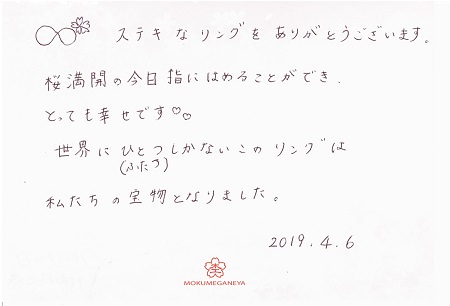 ステキなリングをありがとうございます。
桜満開の今日指にはめることができ、
とっても幸せです♡♡
世界にひとつしかないこのリングは
(ふたつ)
私たちの宝物となりました。
2019.4.6
MOKUMEGANEYA